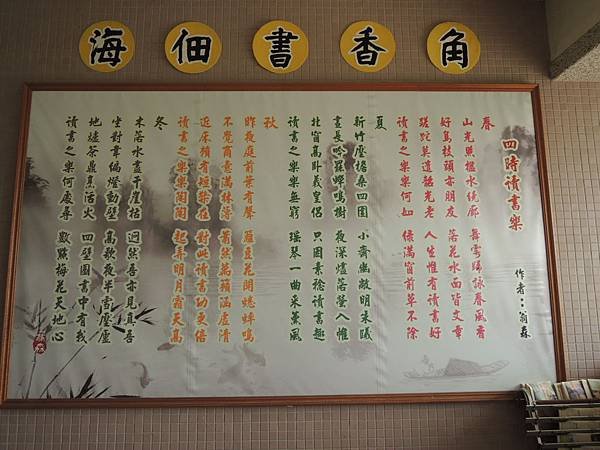 海佃書香角
四時讀書樂
作者：翁森
春
山光照檻水繞廊 舞雩歸詠春風香
好鳥枝頭亦朋友 落花水面皆文章
蹉跎莫遣韶光老 人生惟有讀書好
讀書之樂樂何如 綠滿窗前草不除
夏
新竹壓檐桑四圍 小齋幽敞明朱曦
晝長吟罷蟬鳴樹 夜深燼落螢入幃
北窗高臥羲皇侶 只因素稔讀書趣
讀書之樂樂無窮 瑤琴一曲來薰風
秋
昨夜庭前葉有聲 籬豆花開蟋蟀鳴
不覺商意滿林薄 蕭然萬籟涵虛清
近床賴有短檠在 對此讀書功更倍
讀書之樂樂陶陶 起弄明月霜天高
冬
木落水盡千崖枯 迥然吾亦見真吾
坐對韋編燈動壁 高歌夜半雪壓廬
地爐茶鼎烹活火 四壁圖書中有我
讀書之樂何處尋 數點梅花天地心